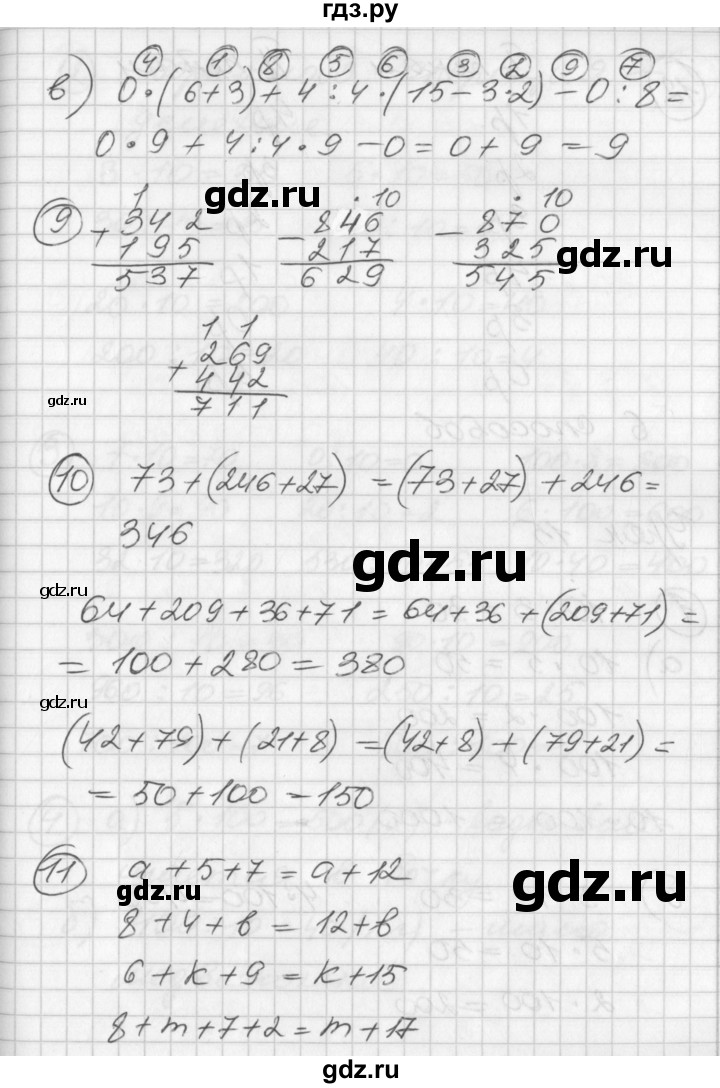 гдз.ру
④ ① ⑧ ⑤ ⑥ ③ ② ⑨ ⑦
в) 0·(6+3)+4:4·(15-3·2)-0:8=
0·9+4:4·9-0=0+9=9
gdz.ru
1 · 10 · 10
⑨ +342 -846 -870
195 217 325
537 629 545
gdz.ru
1 1
+269
442
711
gdz.ru
⑩ 73+(246+27)=(73+27)+246=
346
gdz.ru
gdz.ru
64+209+36+71=64+36+(209+71)=
=100+280=380
gdz.ru
(42+79)+(21+8)=(42+8)+(79+21)=
=50+100-150
⑪ a+5+7=a+12
gdz.ru
gdz.ru
8+4+в=12+в
6+k+9=k+15
8+m+7+2=m+17
gdz.ru